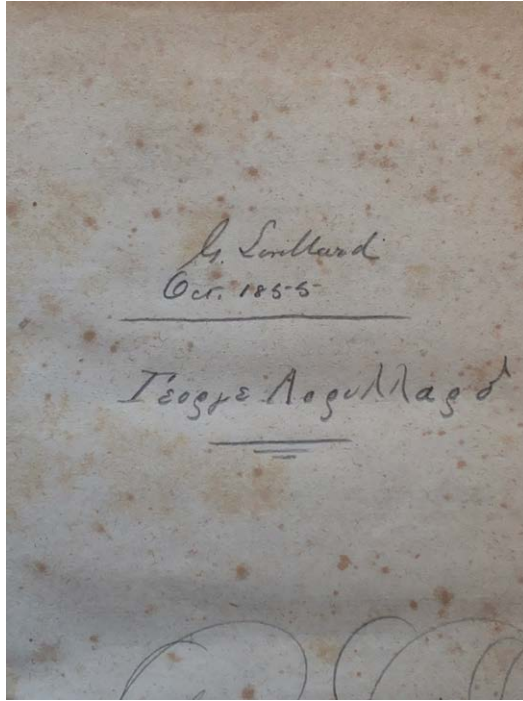 G. Lorillard
Oct. 1855
Γέοργε Λορυλλαρδ